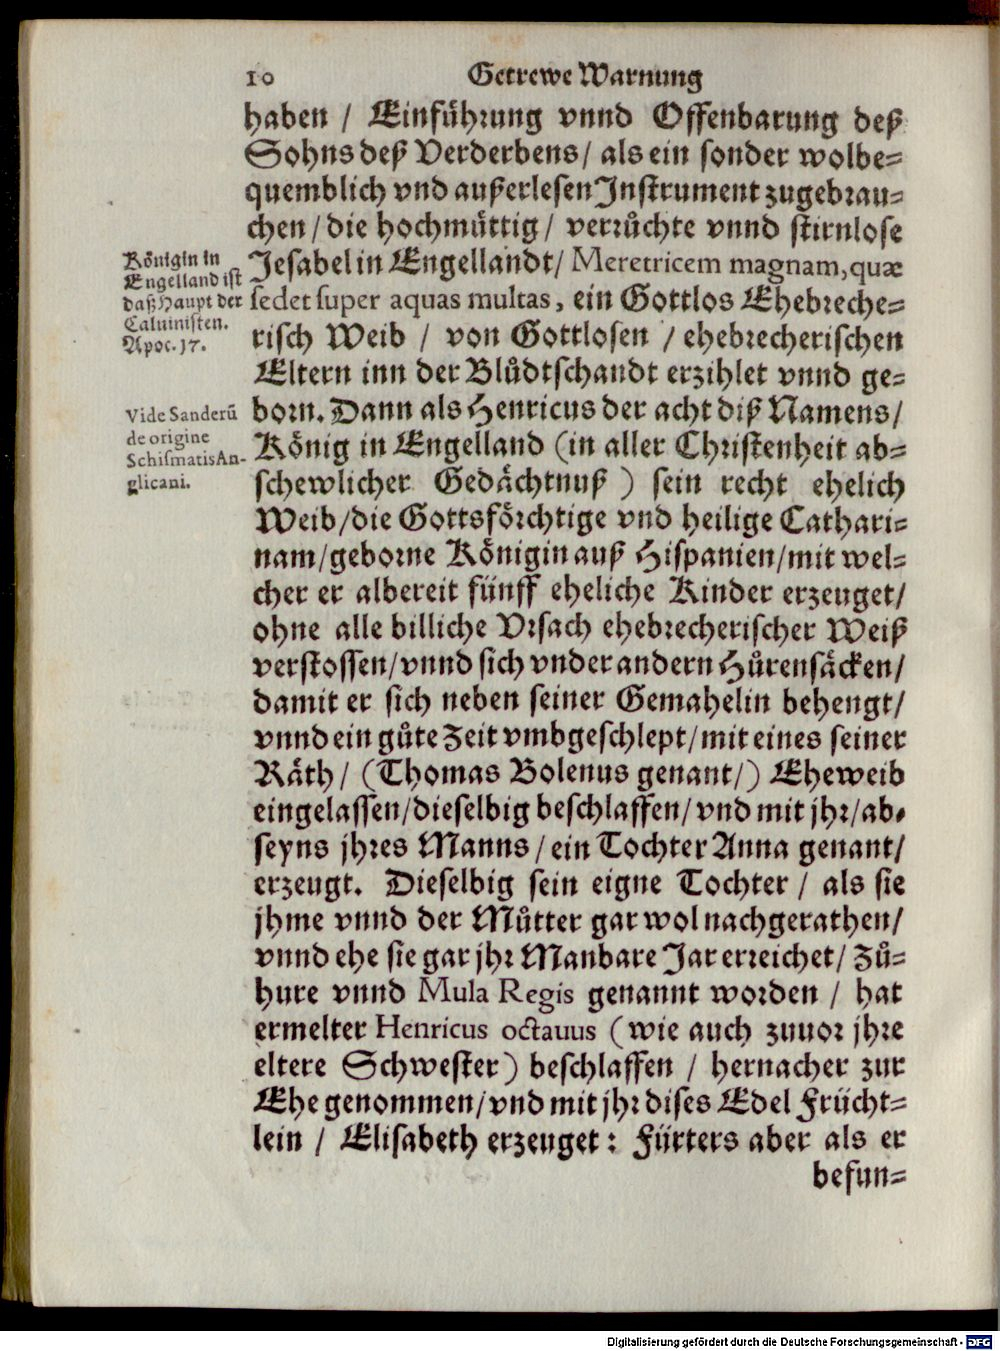 10 Getrewe Warnung
haben / Einführung vnnd Offenbarung deß
Sohns deß Verderbens / als ein sonder wolbe-
quemblich vnd außerlesen Instrument zugebrau-
chen / die hochmüttig / verrůchte vnnd stirnlose
Jesabel in Engellandt / Meretricem magnam, quæ
sedet super aquas multas, ein Gottlos Ehebreche-
risch Weib / von Gottlosen / ehebrecherischen
Eltern inn der Blůdtschandt erzihlet vnnd ge-
born. Dann als Henricus der acht diß Namens /
König in Engelland (in aller Christenheit ab-
schewlicher Gedächtnuß) sein recht ehelich
Weib / die Gottsförchtige vnd heilige Cathari-
nam / geborne Königin auß Hispanien / mit wel-
cher er albereit fünff eheliche Kinder erzeuget /
ohne alle billiche Vrsach ehebrecherischer Weiß
verstossen / vnnd sich vnder andern Hůrensäcken /
damit er sich neben seiner Gemahelin behengt /
vnnd ein gůte Zeit vmbgeschlept / mit eines seiner
Räth / (Thomas Bolenus genant /) Eheweib
eingelassen / dieselbig beschlaffen / vnd mit jhr / ab-
seyns jhres Manns / ein Tochter Anna genant /
erzeugt. Dieselbig sein eigne Tochter / als sie
jhme vnnd der Můtter gar wol nachgerathen /
vnnd ehe sie gar jhr Manbare Jar erreichet / Zů-
hure vnnd Mula Regis genannt worden / hat
ermelter Henricus octauus (wie auch zuuor jhre
eltere Schwester) beschlaffen / hernacher zur
Ehe genommen / vnd mit jhr dises Edel Frücht-
lein / Elisabeth erzeuget : Fürters aber als er
befun-
Königin in
Engelland ist
daß Haupt der
Caluinisten.
Apoc. 17.
Vide Sanderũ
de origine
Schismatis An-
glicani.
Digitalisierung gefördert durch die Deutsche Forschungsgemeinschaft - DFG